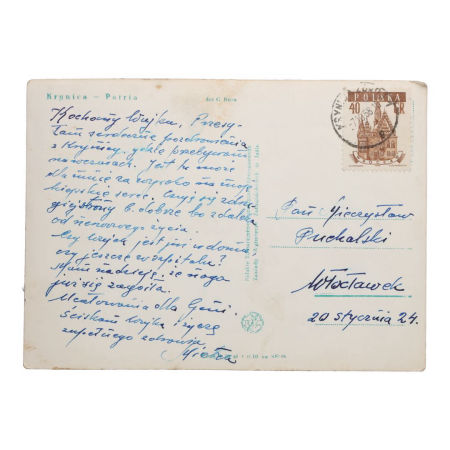 Krynica – Patria
fot. C.
POLSKA
40 GR
Kochany Wujku, Przesy-
łam serdeczne pozdrowienia
z Krynicy, gdzie przebywam
na wczasach. Jest tu może
dla mnie za wysoko na moje
serce. Czuję się
b. dobrze bo zdala
od nerwowego życia.
Czy wujek jest już w domu
czy jeszcze w szpitalu?
Mam nadzieję, że noga
już się zagoiła.
Ucałowania dla Geni.
Ściskam wujka i życzę
zupełnego zdrowia
Mietka
Pan Mieczysław
Puchalski
Włocławek
20 stycznia 24.